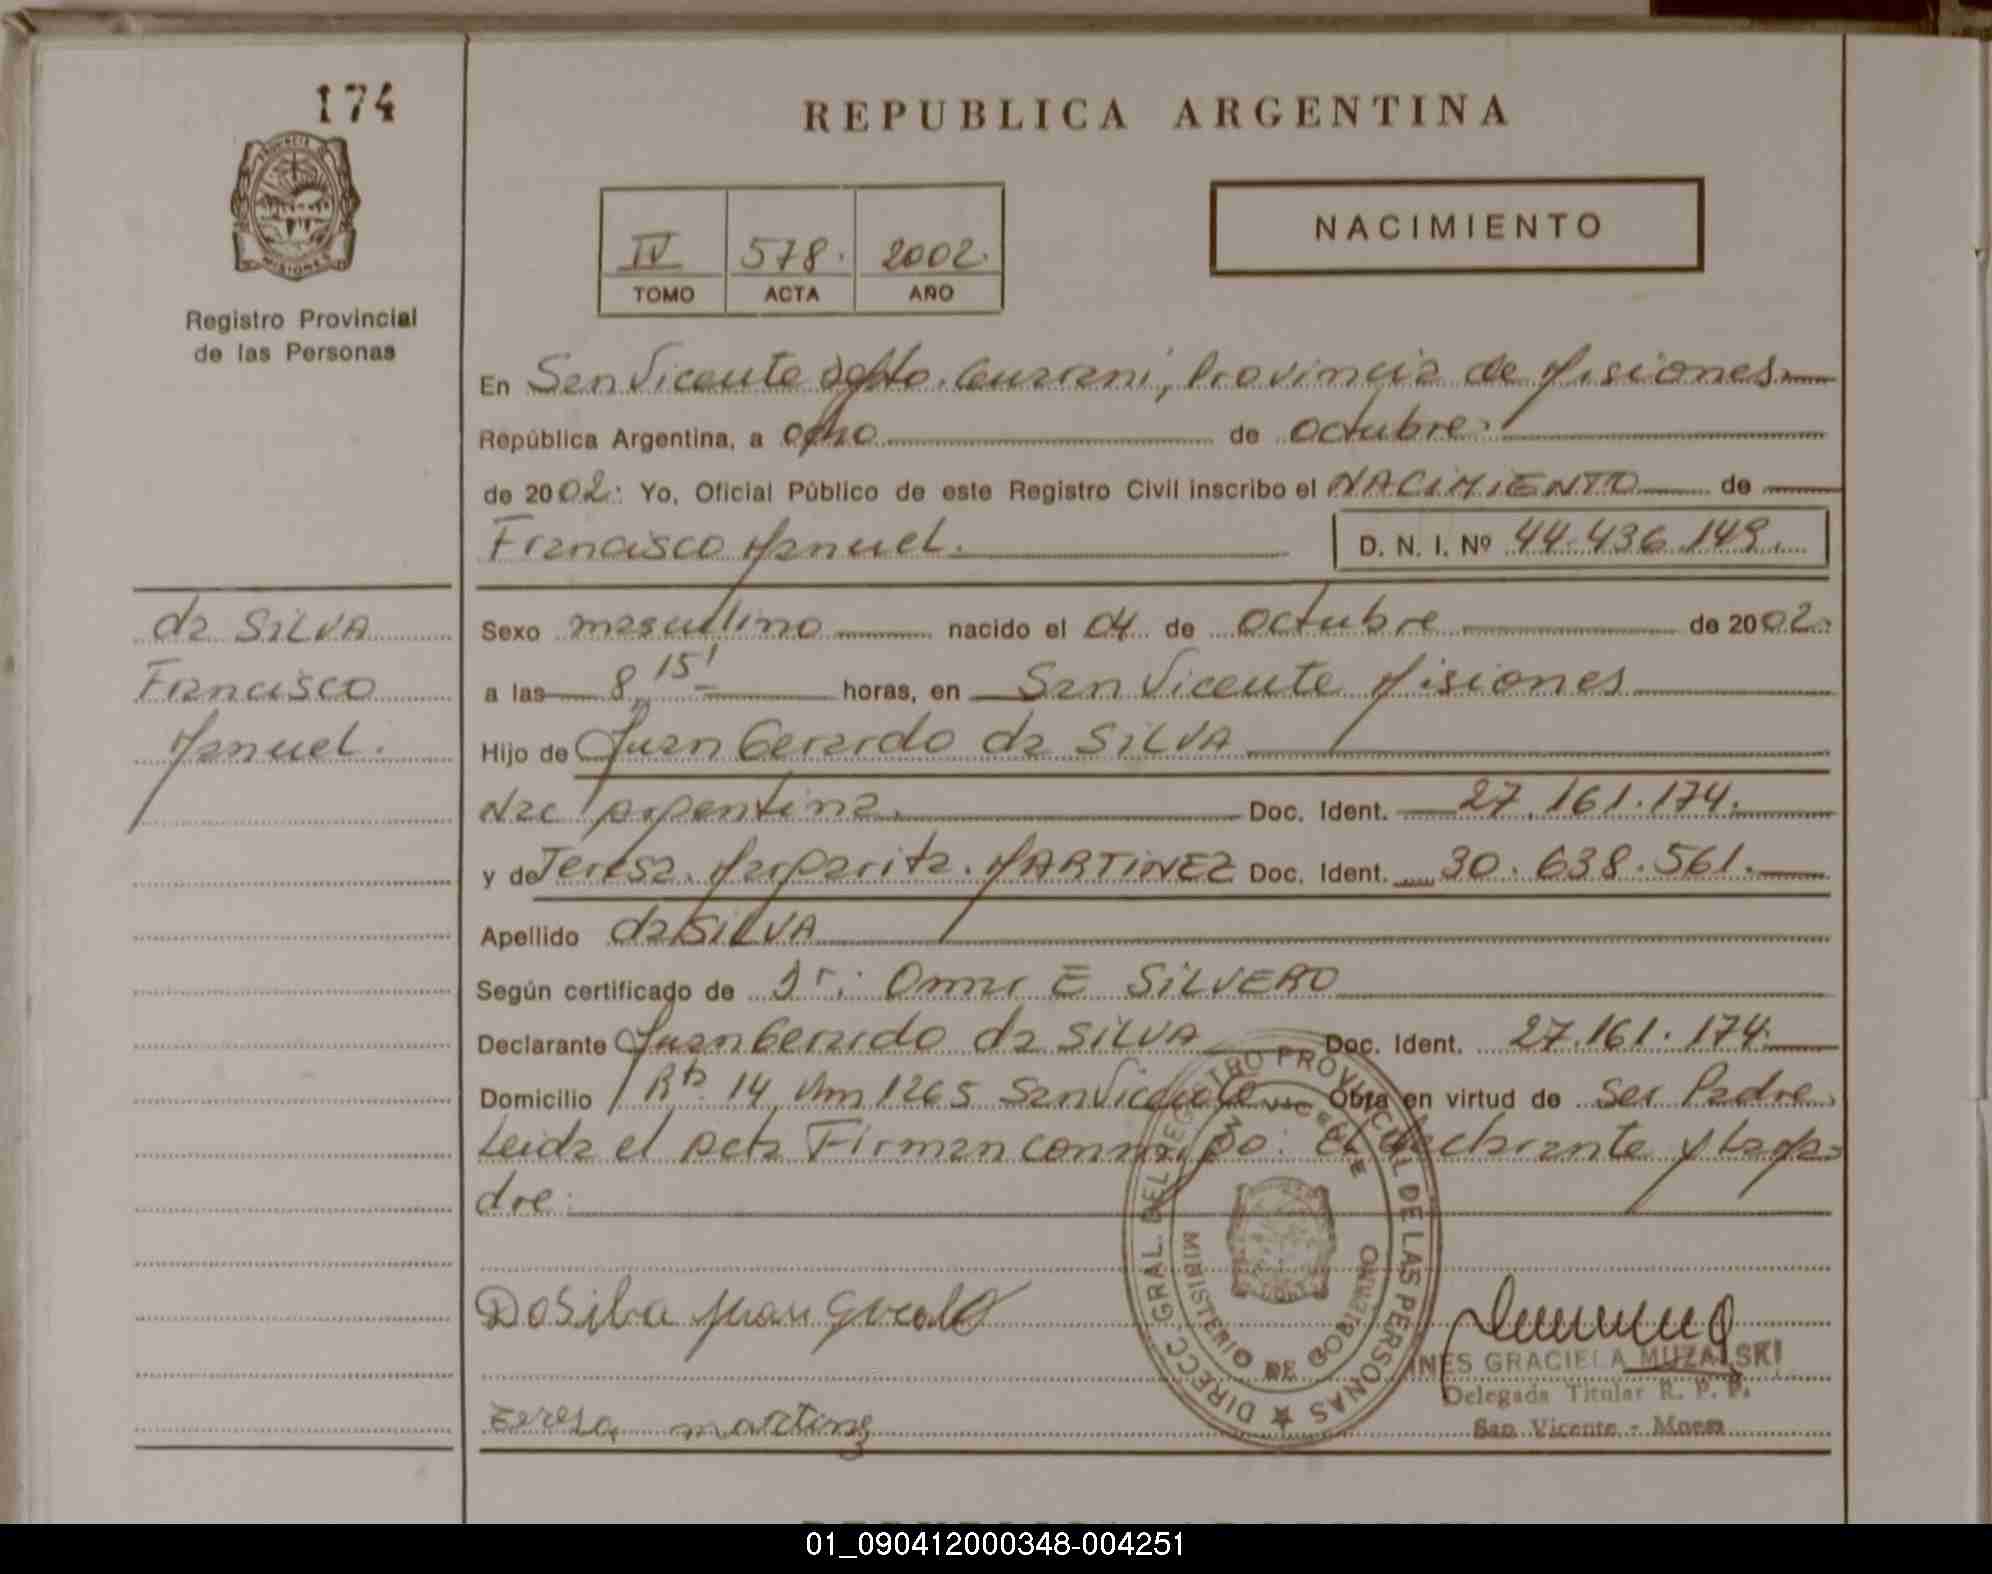 174
Registro Provincial
de las Personas
REPUBLICA ARGENTINA
IV 578. 2002.
TOMO ACTA AÑO
NACIMIENTO
En San Vicente dpto. Guarani, Provincia de Misiones
República Argentina, a ocho de octubre
de 2002: Yo, Oficial Público de este Registro Civil inscribo el NACIMIENTO de
Francisco Manuel. D. N. I. Nº 44.436.149.
da SILVA
Francisco
Manuel.
Sexo masculino nacido el 04 de octubre de 2002.
a las 8,15' horas, en San Vicente Misiones
Hijo de Juan Gerardo da SILVA
Nac Argentina. Doc. Ident. 27.161.174.
y de Teresa Margarita MARTINEZ Doc. Ident. 30.638.561.
Apellido da SILVA
Según certificado de Dr: Omar E SILVERO
Declarante Juan Gerardo da SILVA Doc. Ident. 27.161.174.
Domicilio Rta 14 Km 1265 San Vicente Obra en virtud de ser Padre.
Leida el acta Firman conmigo: El declarante y la Ma-
dre.
DIRECC. GRAL. DEL REGISTRO PROVINCIAL DE LAS PERSONAS
MINISTERIO DE GOBIERNO
DaSilva Juan Gerardo
INES GRACIELA MUZALSKI
Delegada Titular R. P. P.
San Vicente - Mnes
Teresa martinez
01_090412000348-004251